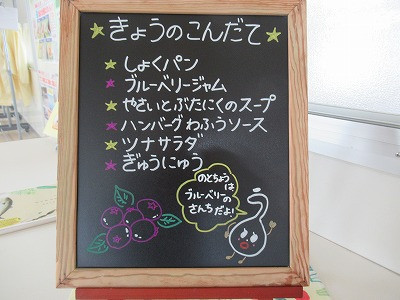 ★きょうのこんだて★
★しょくパン
★ブルーベリージャム
★やさいとぶたにくのスープ
★ハンバーグわふうソース
★ツナサラダ
★ぎゅうにゅう
のとちょう
は
ブルーベリーの
さんちだよ!